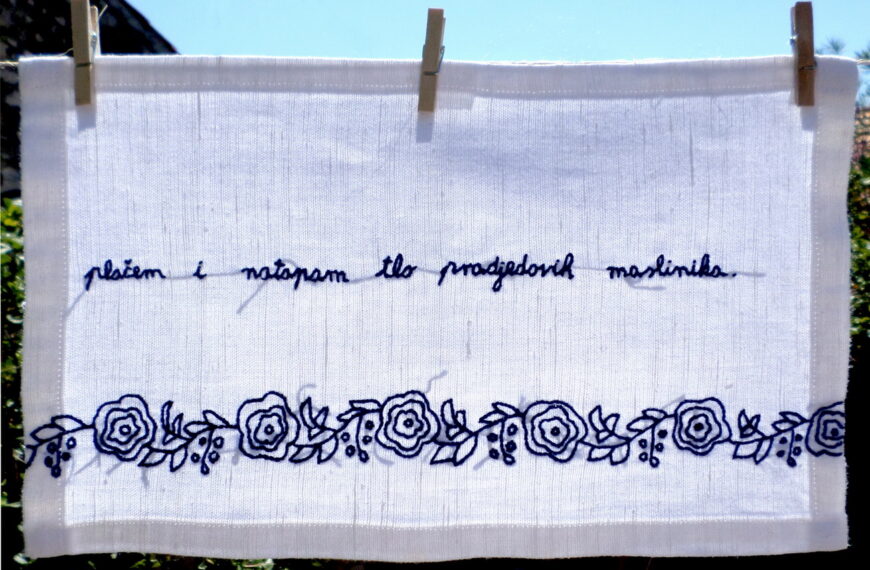 plačem i natapam tlo pradjedovih maslinika.